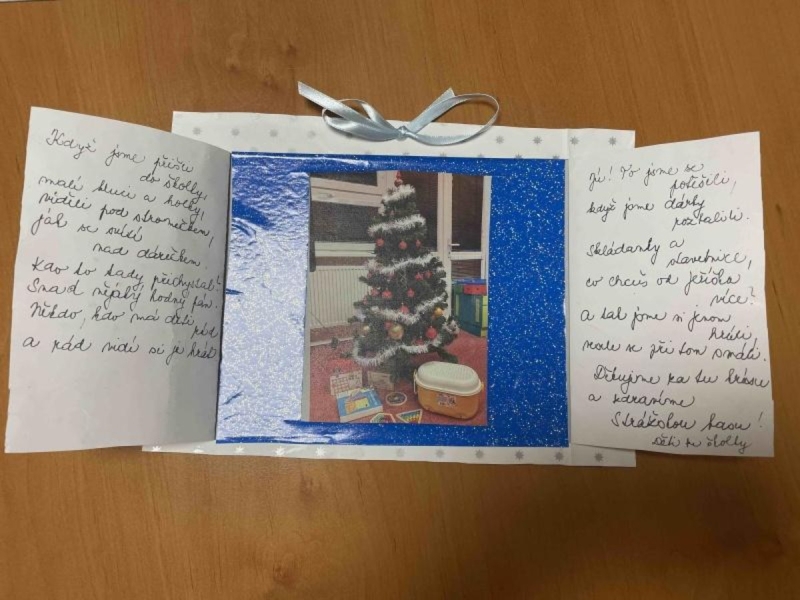 Když jme přišli
do školky,
malí kluci a holky,
viděli pod stromečkem,
jak se svítí
nad dárečkem.
Kdo to tady přichystal?
Snad nějaký hodný pán.
Někdo, kdo má děti rád
a rád vidí si je hrát
Jé! To jsme se
potěšili,
když jsme dárky
rozbalili.
Skládanky a
stavebnice,
co chceš od Ježíška
více?
a tak jsme si jenom
hráli,
moc se při tom smáli.
Děkujeme za tu krásu
a zdravíme
celou
Děti ze školky